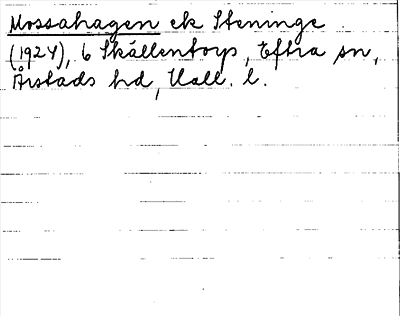 Mossahagen ek Steninge
(1924), 6 Skällentorp, Eftra sn,
Årstads hd, Hall. l.